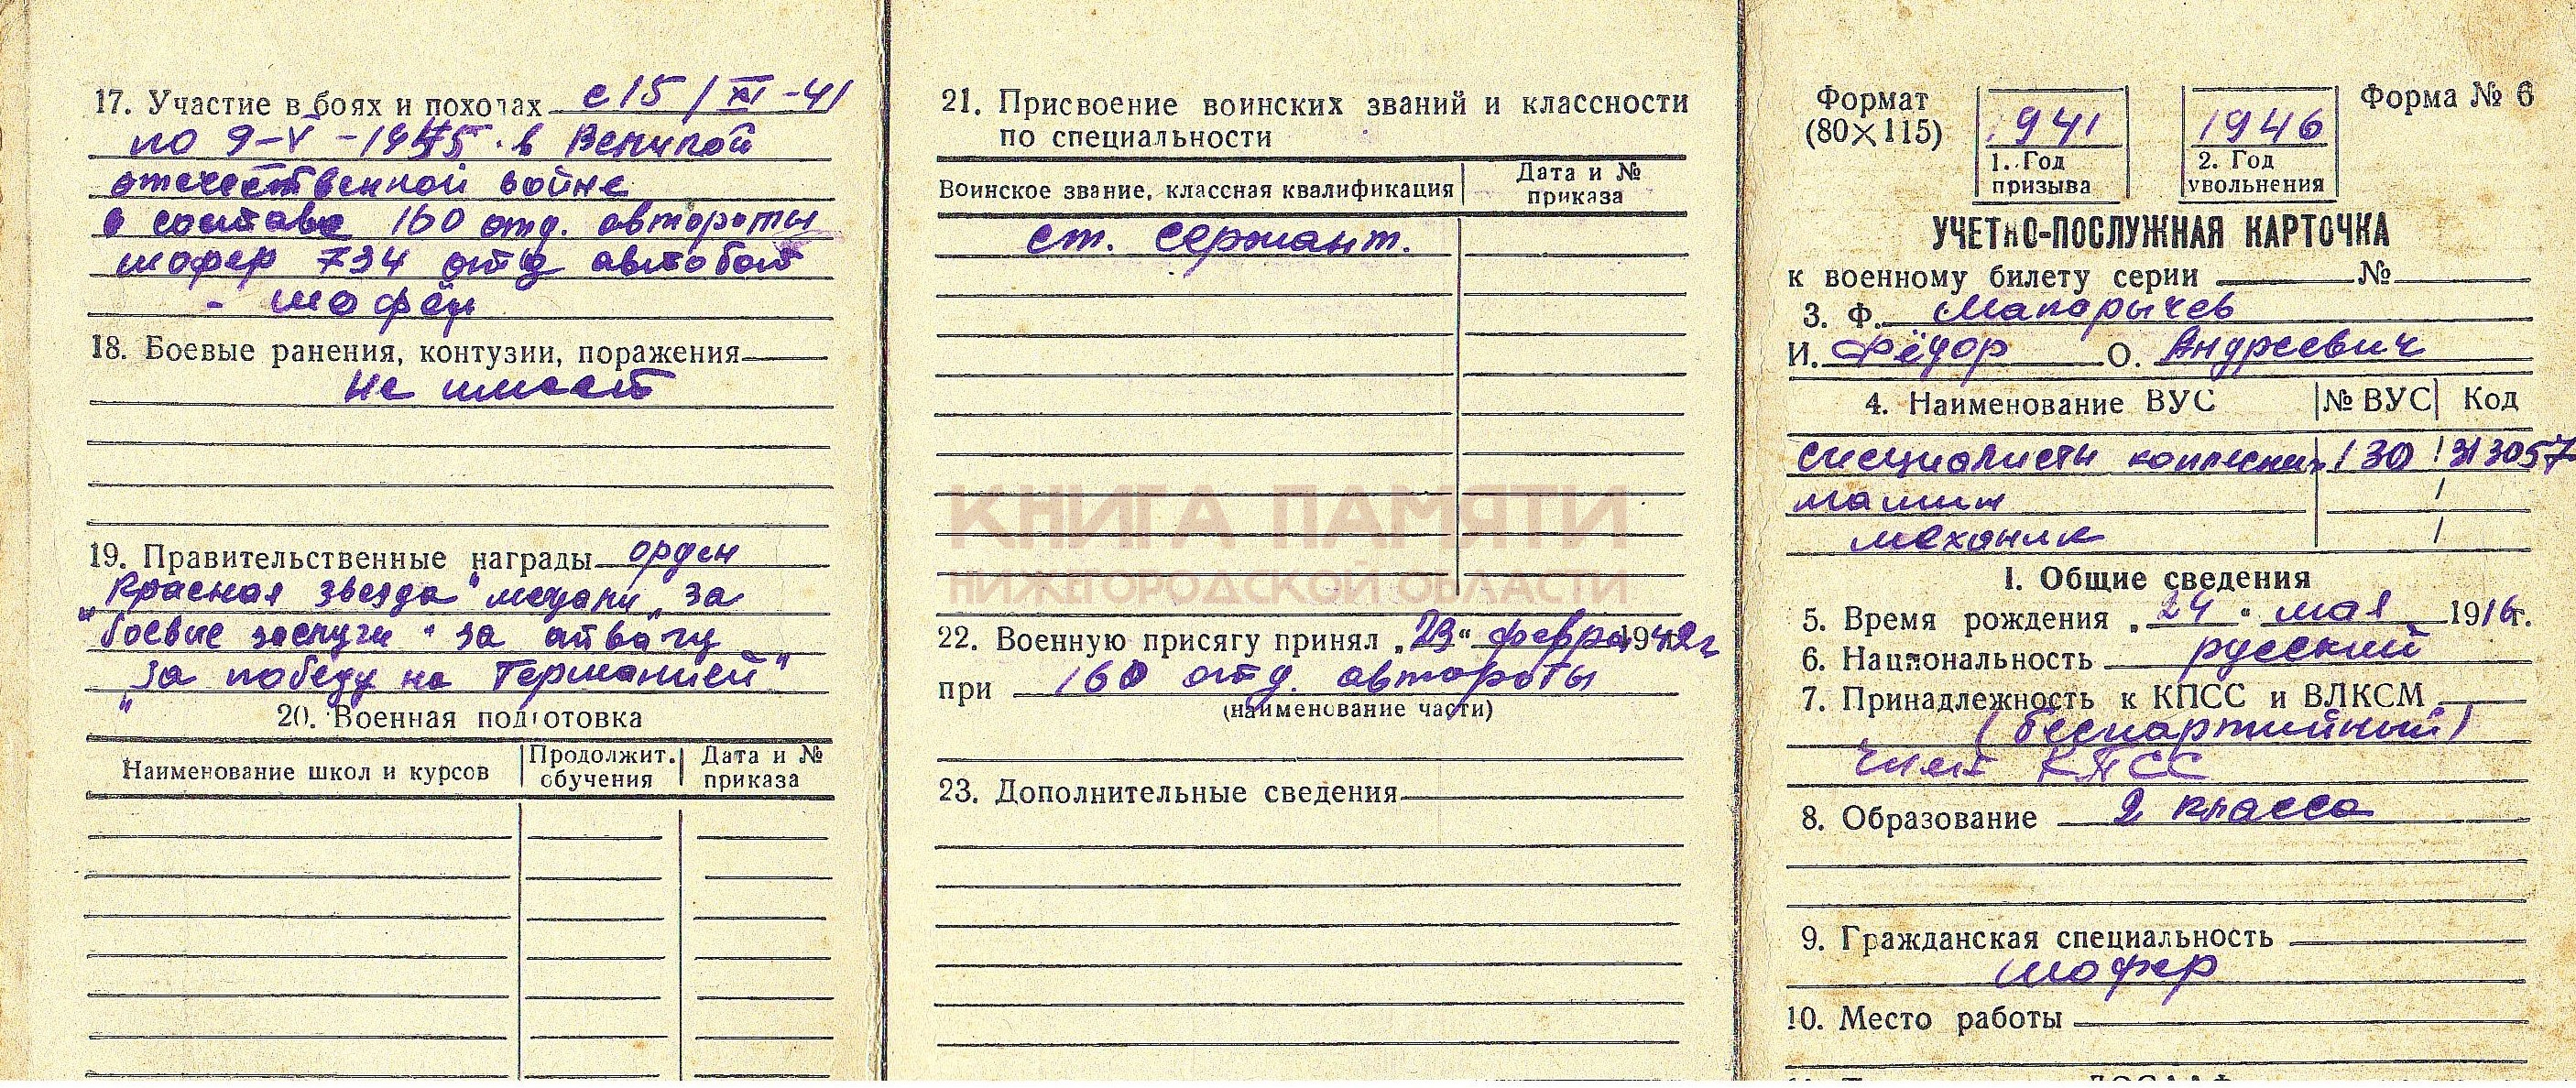 17. Участие в боях и походах с 15/XI-41
по 9-V-1945. в Великой
отечественной войне
в составе 160 отд. автороты
шофер 734 отд автобат
- шофёр
18. Боевые ранения, контузии, поражения
Не имеет
19. Правительственные награды орден
"Красная звезда" медали "за
"боевые заслуги" за отвагу
"за победу на Германией"
20. Военная подготовка
Наименование школ и курсов
Продолжит. обучения
Дата и № приказа
21. Присвоение воинских званий и классности
по специальности
Воинское звание, классная квалификация
Дата и № приказа
ст. сержант.
КНИГА ПАМЯТИ
НИЖЕГОРОДСКОЙ ОБЛАСТИ
22. Военную присягу принял "23" февра 1942г
при 160 отд. автороты
(наименование части)
23. Дополнительные сведения
Формат
(80×115)
1941
1. Год
призыва
1946
2. Год
увольнения
Форма № 6
УЧЕТНО-ПОСЛУЖНАЯ КАРТОЧКА
к военному билету серии № 
3. Ф. Макарычев
И. Фёдор О. Андреевич
4. Наименование ВУС № ВУС Код
специалисты колесных 130
машин
механик
1. Общие сведения
5. Время рождения "24" мая 1916г.
6. Национальность русский
7. Принадлежность к КПСС и ВЛКСМ
(беспартийный)
член КПСС
8. Образование 2 класса
9. Гражданская специальность
шофер
10. Место работы